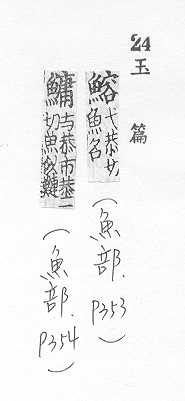 24
玉篇
鰫弋恭切魚名(魚部.P353)
鱅与恭市恭二切魚似鰱(魚部.P354)